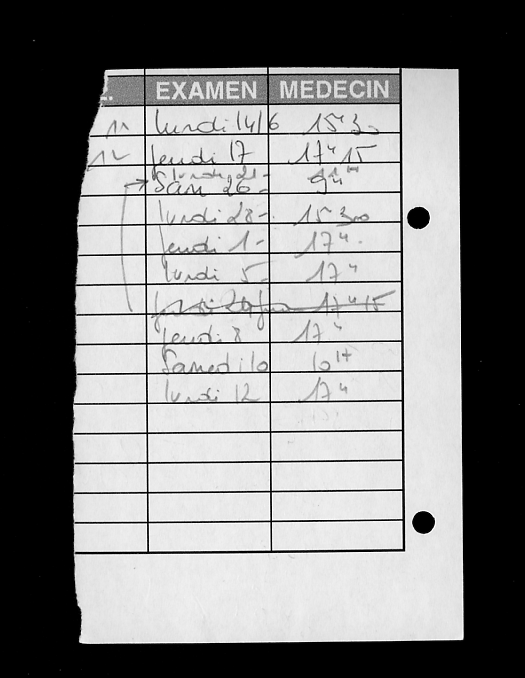 EXAMEN MEDECIN
11 lundi 14/6 15h30
12 Jeudi 17 17h15
lundi 21-
Sam 26- 9h
lundi 28- 15 30
jeudi 1- 17h.
lundi 5- 17h
17h15
jeudi 8 17h
Samedi 10 10H
lundi 12 17h